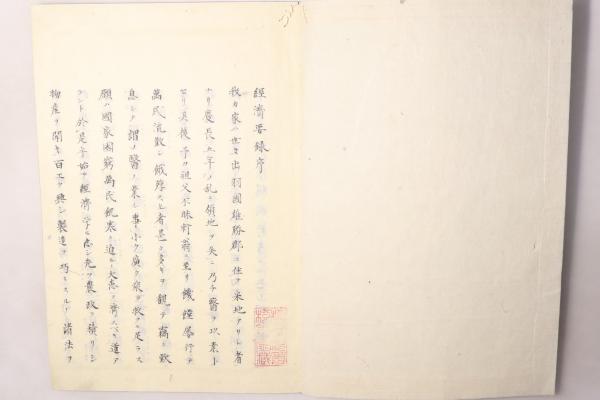 經濟要録序
我カ家ハ世々出羽國雄勝郡ニ住ヲ采地アリシ者
ナリ慶長五年ノ乱ニ領地ヲ失ニ乃チ醫ヲ以業ト
セリ其後予カ祖父不昧軒翁ニ至リ饑饉屢行テ
萬民流散シ餓殍スル者甚タ多キヲ観テ竊ニ歎
息シテ謂ノ醫ノ業ノ事小ク廣ク衆ヲ救フニ足ラス
願ハ國家困窮萬民飢寒ニ迫ルノ大患ヲ濟スヘキ道ア
ラント於是乎始テ經濟學ニ志シ先ツ農政ヲ精リシ
物産ヲ開キ百工ヲ興シ製造ヲ巧ミスルノ諸法ヲ